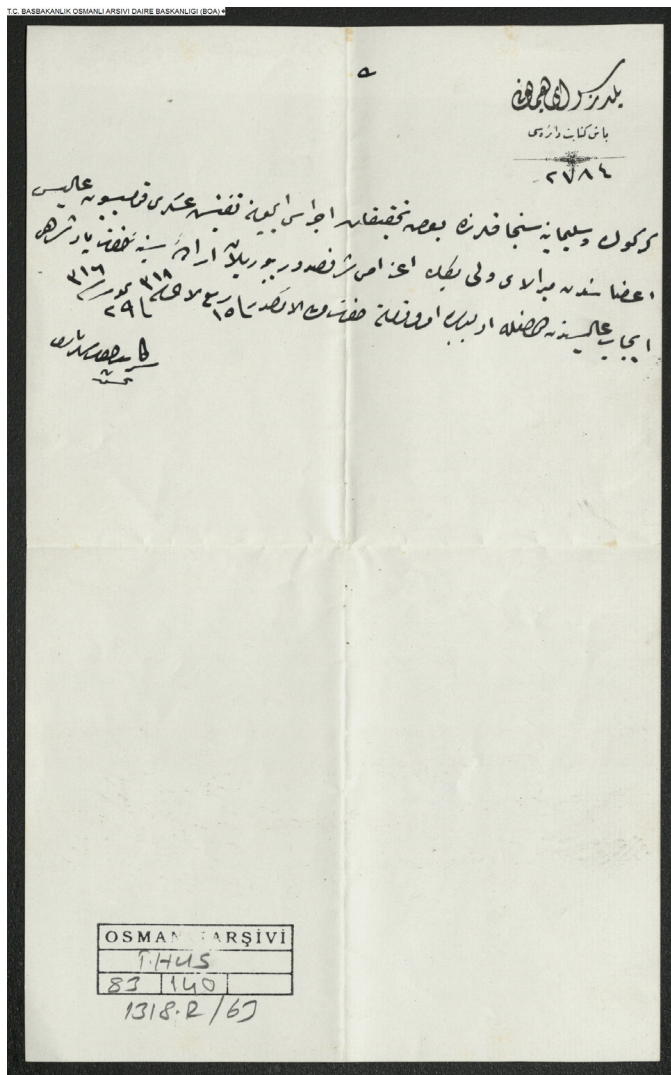 T.C. BASBAKANLIK OSMANLI ARSIVI DAIRE BASKANLIGI (BOA)
یلدیز سرای همایونی
باش كتابت دائره سی
٢٧٨٤
كركوك و سلیمانیه سنجاقلرنده بعض تحقیقات اجراسی ایچون تفتیش عسكری قومیسیون عالیسی
اعضاسندن میرالای ولی بكك اعزامی شرفصدور بیوریلان اراده سنیه حضرت پادشاهی
ایجاب عالیسندن اولمغله اولبابده امر و فرمان حضرت ولی الامركدر فی ١٥ ربیع الاخر ٣١٨ فی ٢٩ تموز ٣١٦
تحسین
OSMANLI ARŞİVİ
İ.HUS
83 140
1318.R/63